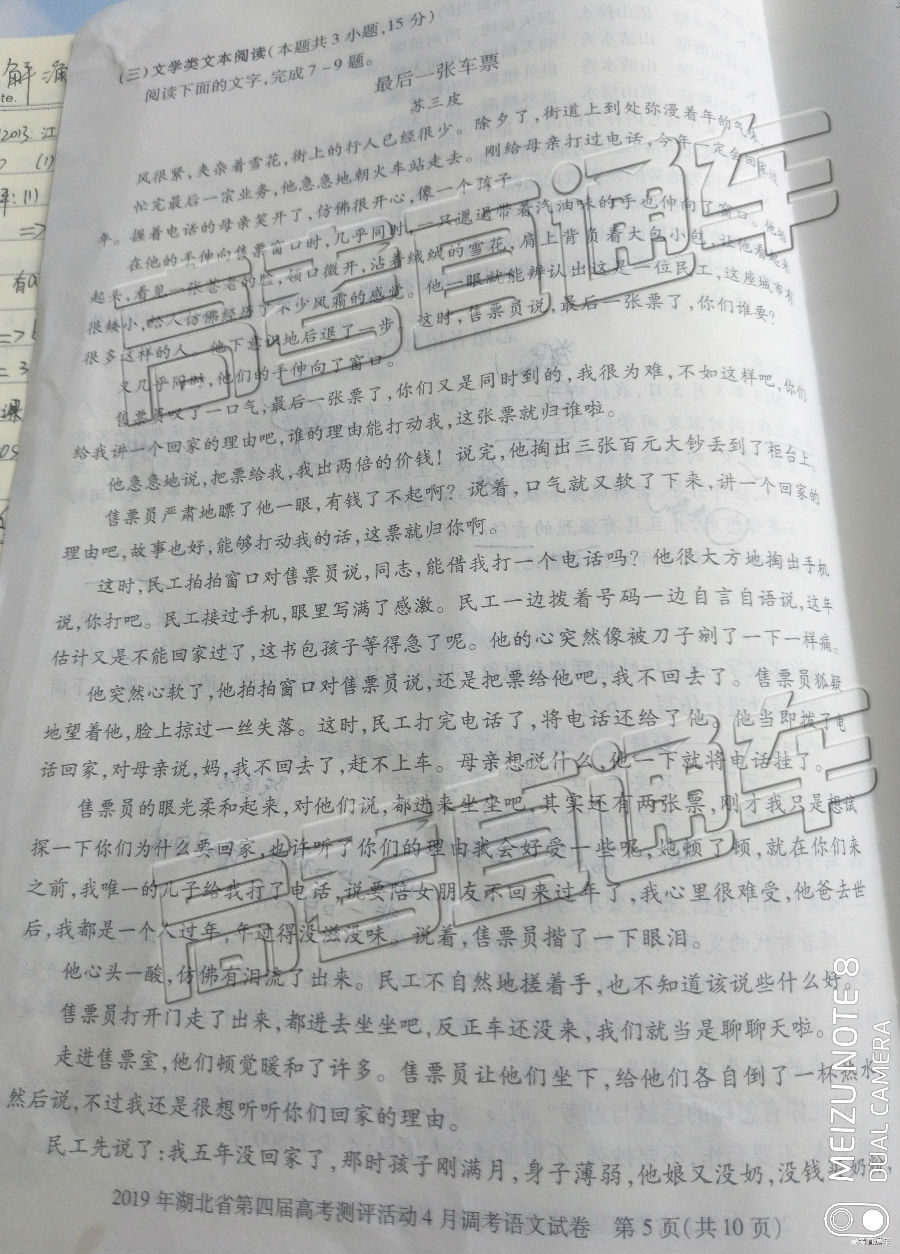 (三)文学类文本阅读(本题共3小题,15分)
阅读下面的文字,完成7-9题。
最后一张车票
苏三皮
风很紧,夹杂着雪花,街上的行人已经很少。除夕了,街道上到处弥漫着年的气味。
忙完最后一宗业务,他急急地朝火车站走去。刚给母亲打过电话,今年一定会回家过
年。握着电话的母亲笑开了,仿佛很开心,像一个孩子。
在他的手伸向售票窗口时,几乎同时,一只邋遢带着汽油味的手也伸向了窗口。他抬
起头,看见一张苍老的脸,领口微开,沾着绒绒的雪花,肩上背负着大包小包,让他看起来
很矮小,给人仿佛经历了不少风霜的感觉。他一眼就能辨认出这是一位民工,这座城市有
很多这样的人。他下意识地后退了一步。这时,售票员说,最后一张票了,你们谁要?
又几乎同时,他们的手伸向了窗口。
售票员叹了一口气,最后一张票了,你们又是同时到的,我很为难,不如这样吧,你们
给我讲一个回家的理由吧,谁的理由能打动我,这张票就归谁啦。
他急急地说,把票给我,我出两倍的价钱!说完,他掏出三张百元大钞丢到了柜台上。
售票员严肃地瞟了他一眼,有钱了不起啊?说着,口气就又软了下来,讲一个回家的
理由吧,故事也好,能够打动我的话,这票就归你啊。
这时,民工拍拍窗口对售票员说,同志,能借我打一个电话吗?他很大方地掏出手机
说,你打吧。民工接过手机,眼里写满了感激。民工一边拨着号码一边自言自语说,这年
估计又是不能回家过了,这书包孩子等得急了呢。他的心突然像被刀子剜了一下一样痛。
他突然心软了,他拍拍窗口对售票员说,还是把票给他吧,我不回去了。售票员狐疑
地望着他,脸上掠过一丝失落。这时,民工打完电话了,将电话还给了他。他当即拨了电
话回家,对母亲说,妈,我不回去了,赶不上车。母亲想说什么,他一下就将电话挂了。
售票员的眼光柔和起来,对他们说,都进来坐坐吧,其实还有两张票,刚才我只是想试
探一下你们为什么要回家,也许听了你们的理由我会好受一些呢,她顿了顿,就在你们来
之前,我唯一的儿子给我打了电话,说要陪女朋友不回来过年了,我心里很难受,他爸去世
后,我都是一个人过年,年过得没滋没味。说着,售票员揩了一下眼泪。
他心头一酸,仿佛有泪流了出来。民工不自然地搓着手,也不知道该说些什么好。
售票员打开门走了出来,都进去坐坐吧,反正车还没来,我们就当是聊聊天啦。
走进售票室,他们顿觉暖和了许多。售票员让他们坐下,给他们各自倒了一杯热水,
然后说,不过我还是很想听听你们回家的理由。
民工先说了:我五年没回家了,那时孩子刚满月,身子薄弱,他娘又没奶,没钱买奶粉,
2019年湖北省第四届高考测评活动4月调考语文试卷 第5页(共10页)
高考直通车
高考直通车
MEIZU NOTE 8
DUAL CAMERA